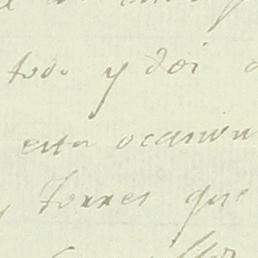 todo y doi
esta ocasion
Torres que